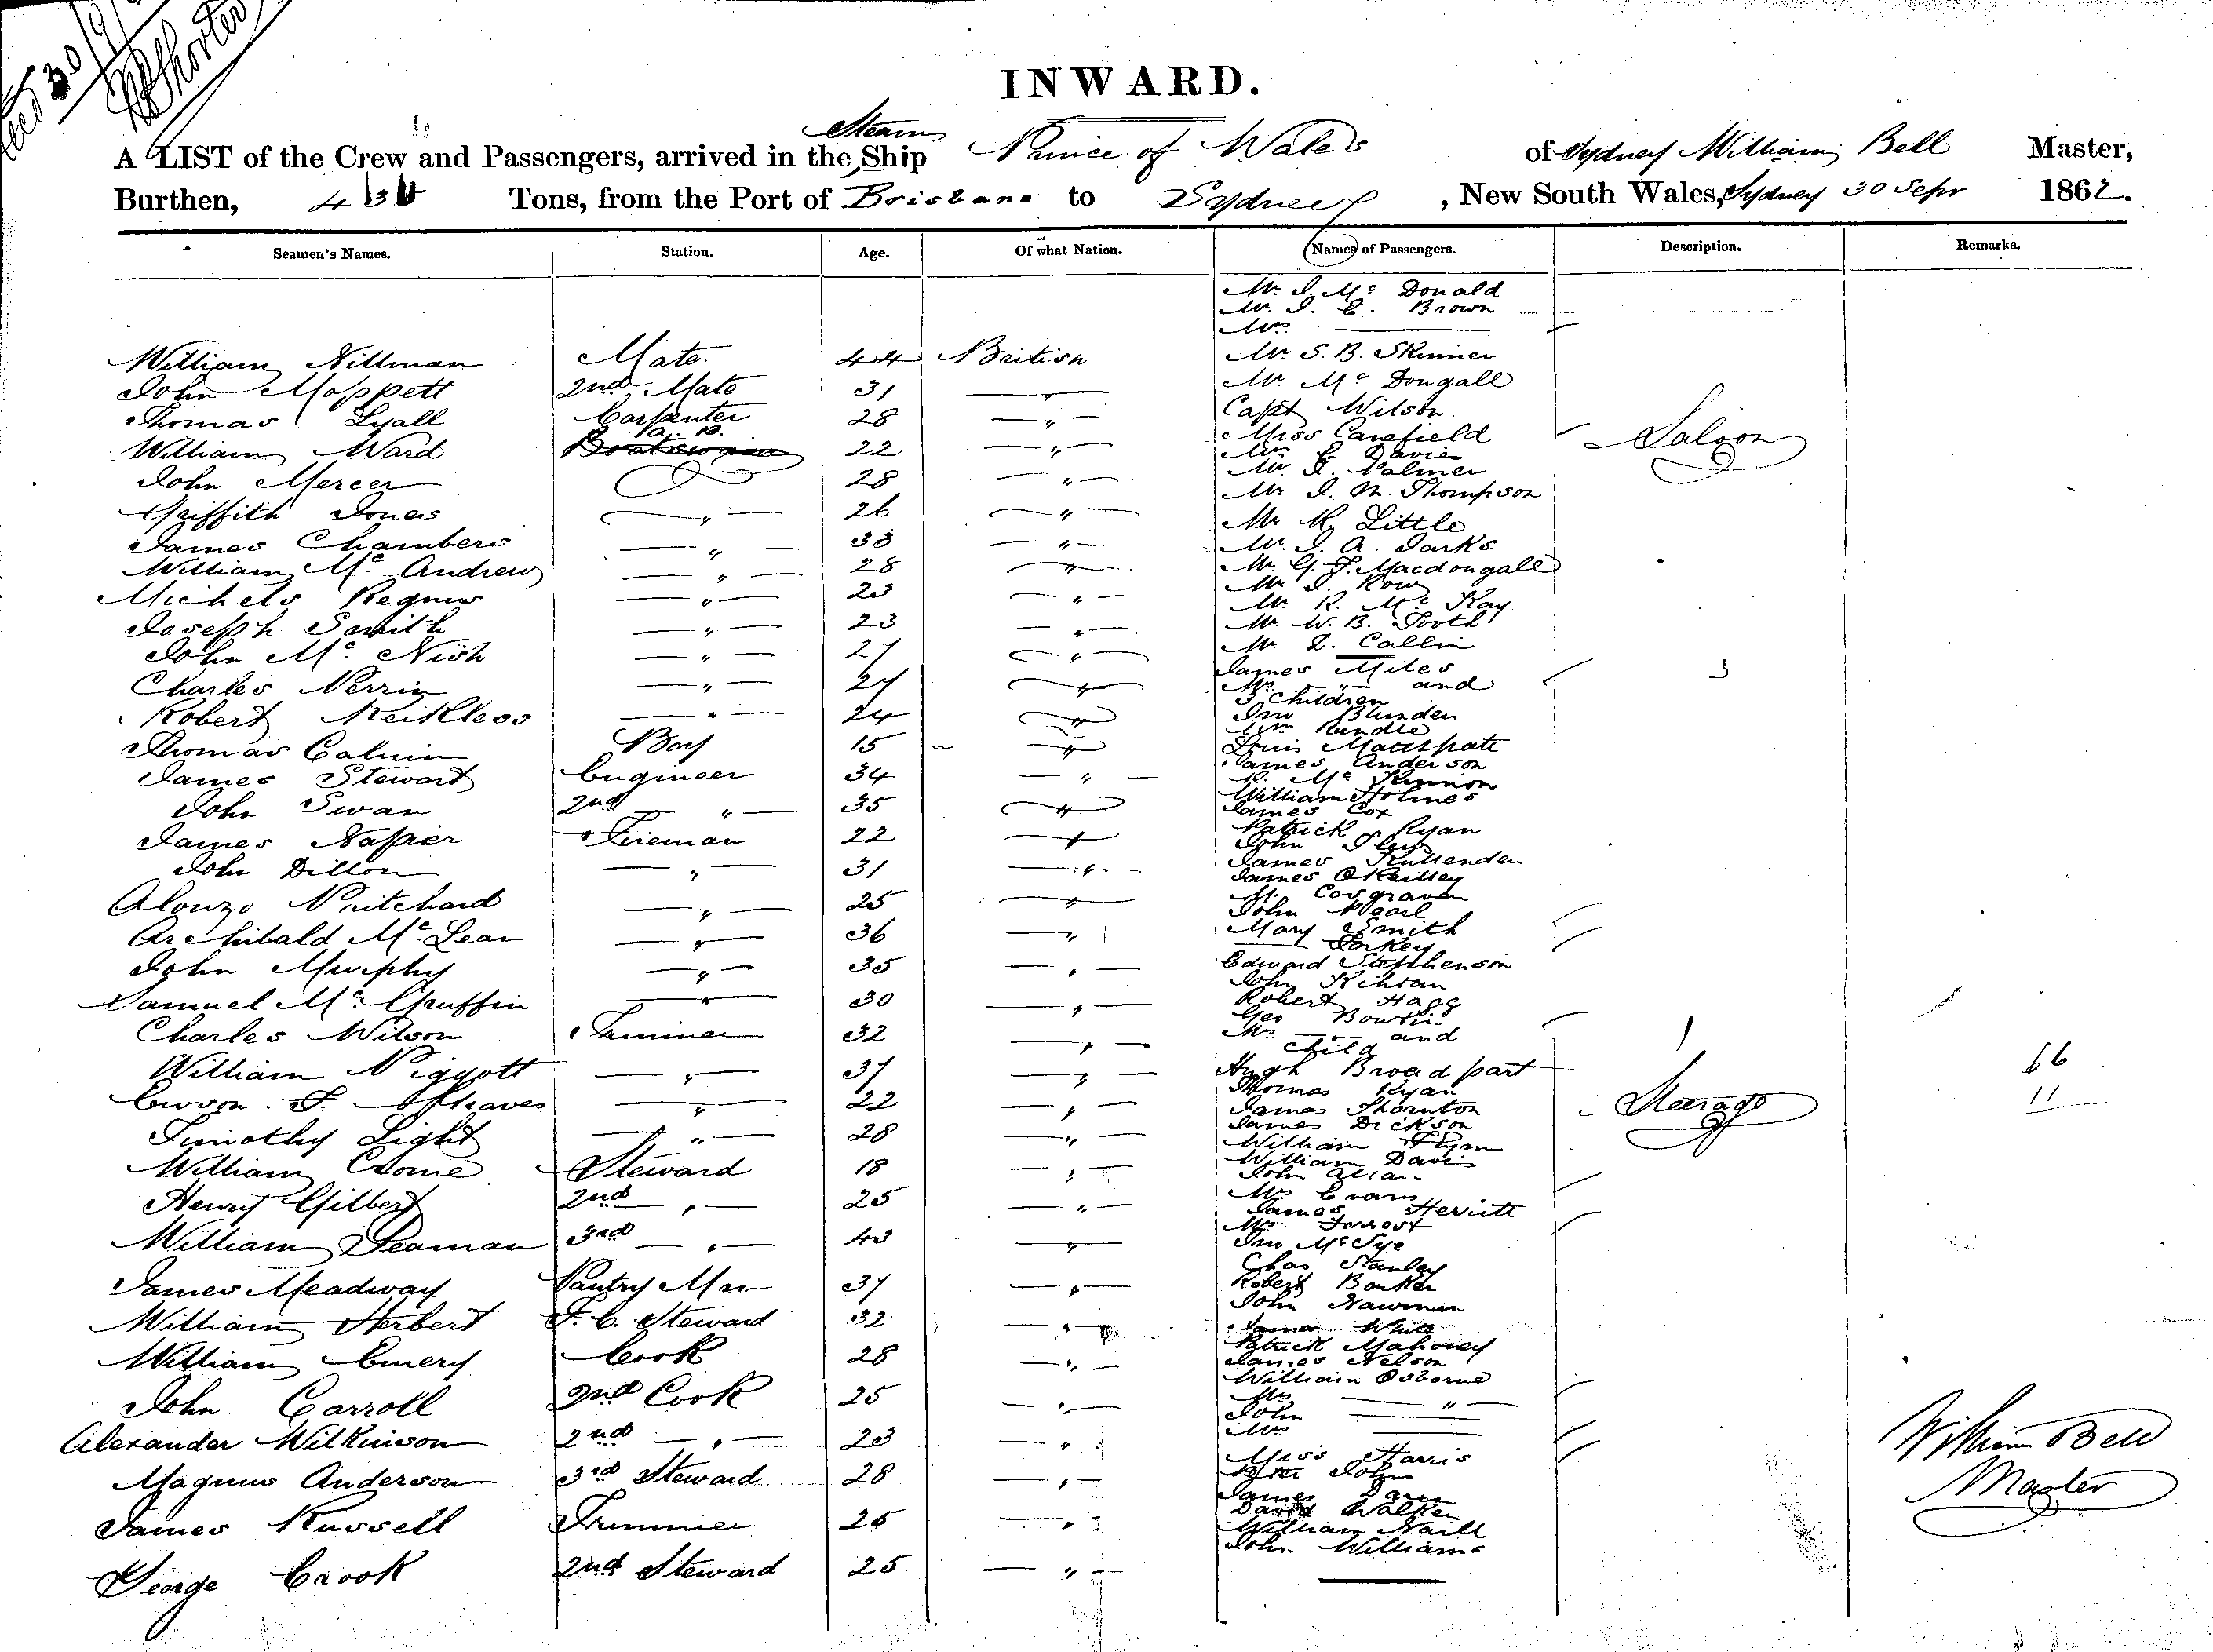 INWARD.
Steam
A LIST of the Crew and Passengers, arrived in the Ship Prince of Wales of Sydney William Bell Master,
Burthen, Tons, from the Port of Brisbane to Sydney, New South Wales, Sydney 30 Sepr 1862.
Seamen's Names. Station. Age. Of what Nation. Names of Passengers. Description. Remarks.
Mr. J. Mc Donald
Mr. J. C. Brown
Mrs. ———
William Mate 44 British Mr. S. B. Skinner
John Moppett 2nd Mate 31 — " — Mr. Mc Dougall
Thomas Lyall Carpenter 28 — " — Capt Wilson.
William Ward A. B. 22 — " — Miss Canefield Saloon
Davies
John Mercer 28 — " — Mr. J. Palmer
Mr J. M. Thompson
Griffith Jones — " — 26 — " —
Mr R. Little
James Chambers — " — 33 — " — Mr. J. A.
William Mc Andrew — " — 28 — " — Mr. G. F. Macdougall
Mr J. Row
— " — 23 — " — Mr. R. Mc Kay
Joseph Smith — " — 23 — " — Mr. W. B. Tooth
John Mc Nish — " — 27 — " — Mr. D. Callin
James Miles 3
Charles — " — 24 — " — Mrs. — " — and
3 Children
Robert — " — 24 — " — Jno Blunden
Wm Rundle
Thomas Calvin Boy 15 — " — Louis
James Anderson
James Stewart Engineer 34 — " — R. Mc
William Holmes
John Swan 2nd — " — 35 — " — James Cox
Patrick Ryan
James Napier Fireman 22 — " — John
James
John Dillon — " — 31 — " — James O'Reilley
M. Cosgraven
Alonzo Pritchard — " — 25 — " — John Pearl
Mary Smith
Archibald Mc Lean — " — 36 — " —
John Murphy — " — 35 — " — Edward Stephenson
John
Samuel Mc Gruffin — " — 30 — " — Robert Hagg
Geo
Charles Wilson Trimmer 32 — " — Mrs. — " — and 1
child
William Piggott — " — 37 — " — Hugh Broadpart 66
Thomas Ryan
— " — 22 — " — James Thornton Steerage 11
James Dickson
Timothy Light — " — 28 — " — William
William
William Steward 18 — " — John
Mrs Evans
Henry Gilbert 2nd — " — 25 — " — James
Mrs. Forrest
William Seaman 3rd — " — 43 — " — Jno
Chas Stanley
James Meadway Pantry Man 37 — " — Robert
John Newman
William Herbert F. C. Steward 32 — " — James White
Patrick Mahoney
William Emery Cook 28 — " — James Nelson
William Osborne
John Carroll 2nd Cook 25 — " — Mrs — " —
John ———
Alexander Wilkinson 2nd — " — 23 — " — Mrs ——— William Bell
Miss Harris
Magnus Anderson 3rd Steward 28 — " — Peter John Master
James
David Walker
James Russell Trimmer 26 — " — William Naill
John Williams
George Crook 2nd Steward 25 — " —